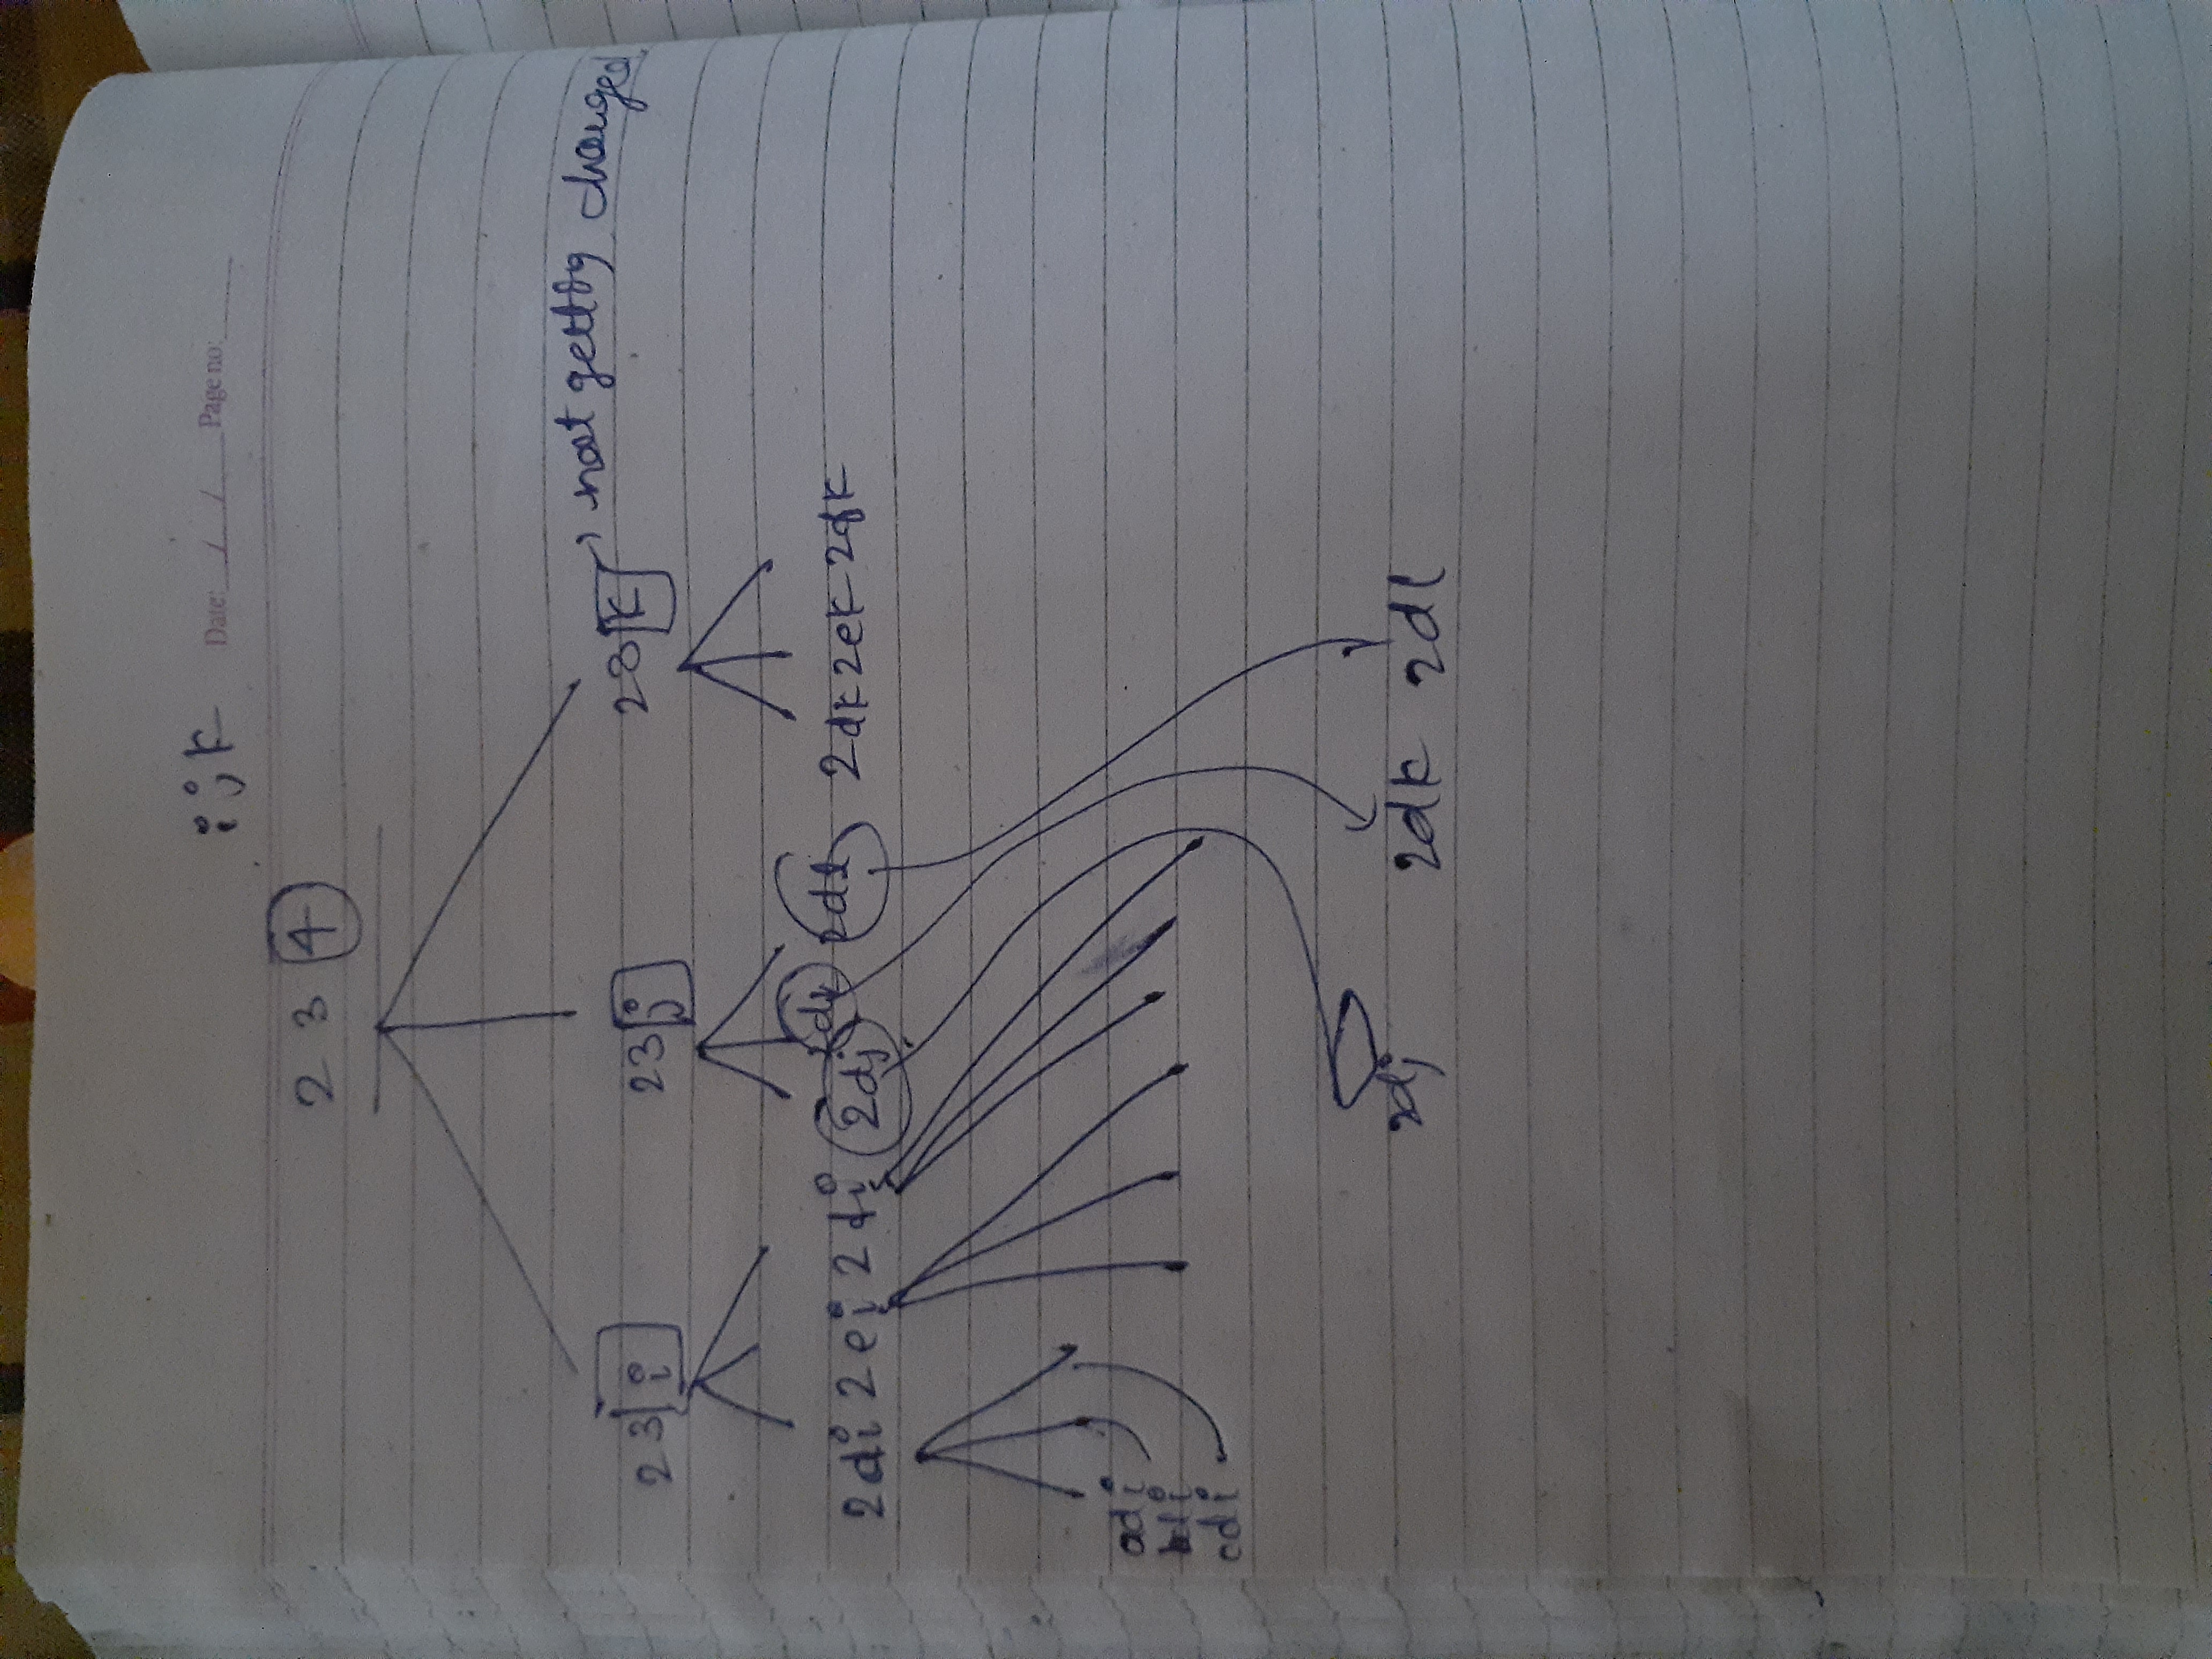 i j k Date: / / Page no:
2 3 4
23 i 23 j 23 k not getting changed
2di 2ei 2fi 2dj 2dk 2dl 2dk 2ek 2fk
adi
cdi
2dj 2dk 2dl